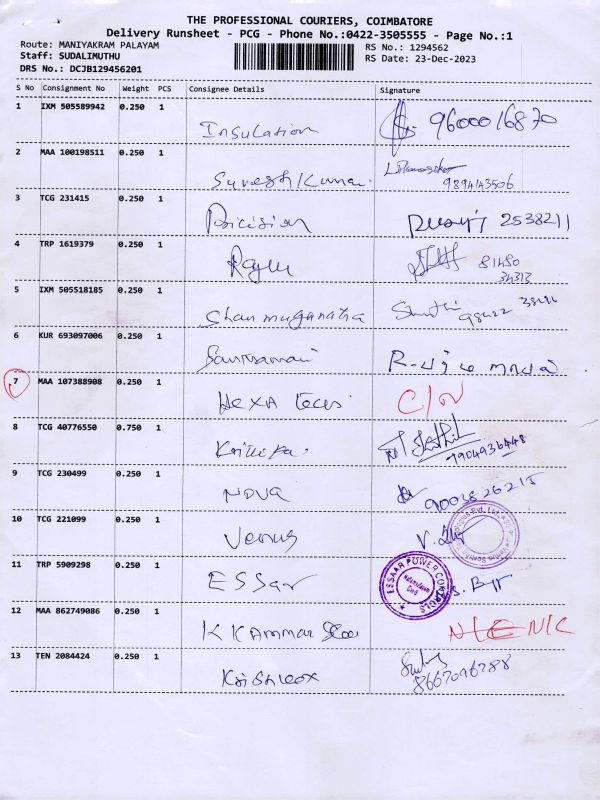 THE PROFESSIONAL COURIERS, COIMBATORE
Delivery Runsheet - PCG - Phone No.:0422-3505555 - Page No.:1
Route: MANIYAKRAM PALAYAM
RS No.: 1294562
Staff: SUDALIMUTHU
RS Date: 23-Dec-2023
DRS No.: DCJB129456201
S No Consignment No Weight PCS Consignee Details Signature
1 IXM 505589942 0.250 1
Insulation 9600016870
2 MAA 100198511 0.250 1
Suresh Kumar. 9894143506
3 TCG 231415 0.250 1
2538211
4 TRP 1619379 0.250 1
Raju 81480
34313
5 IXM 505518185 0.250 1
Shanmuganatha
6 KUR 693097006 0.250 1
7 MAA 107388908 0.250 1
HEXA Tecs C/N
8 TCG 40776550 0.750 1
7904936448
9 TCG 230499 0.250 1
NOVA
10 TCG 221099 0.250 1
Venus
11 TRP 5909298 0.250 1
ESSar ESSAAR POWER CONTROLS
12 MAA 862749086 0.250 1
K K AMMAN N/C
13 TEN 2084424 0.250 1